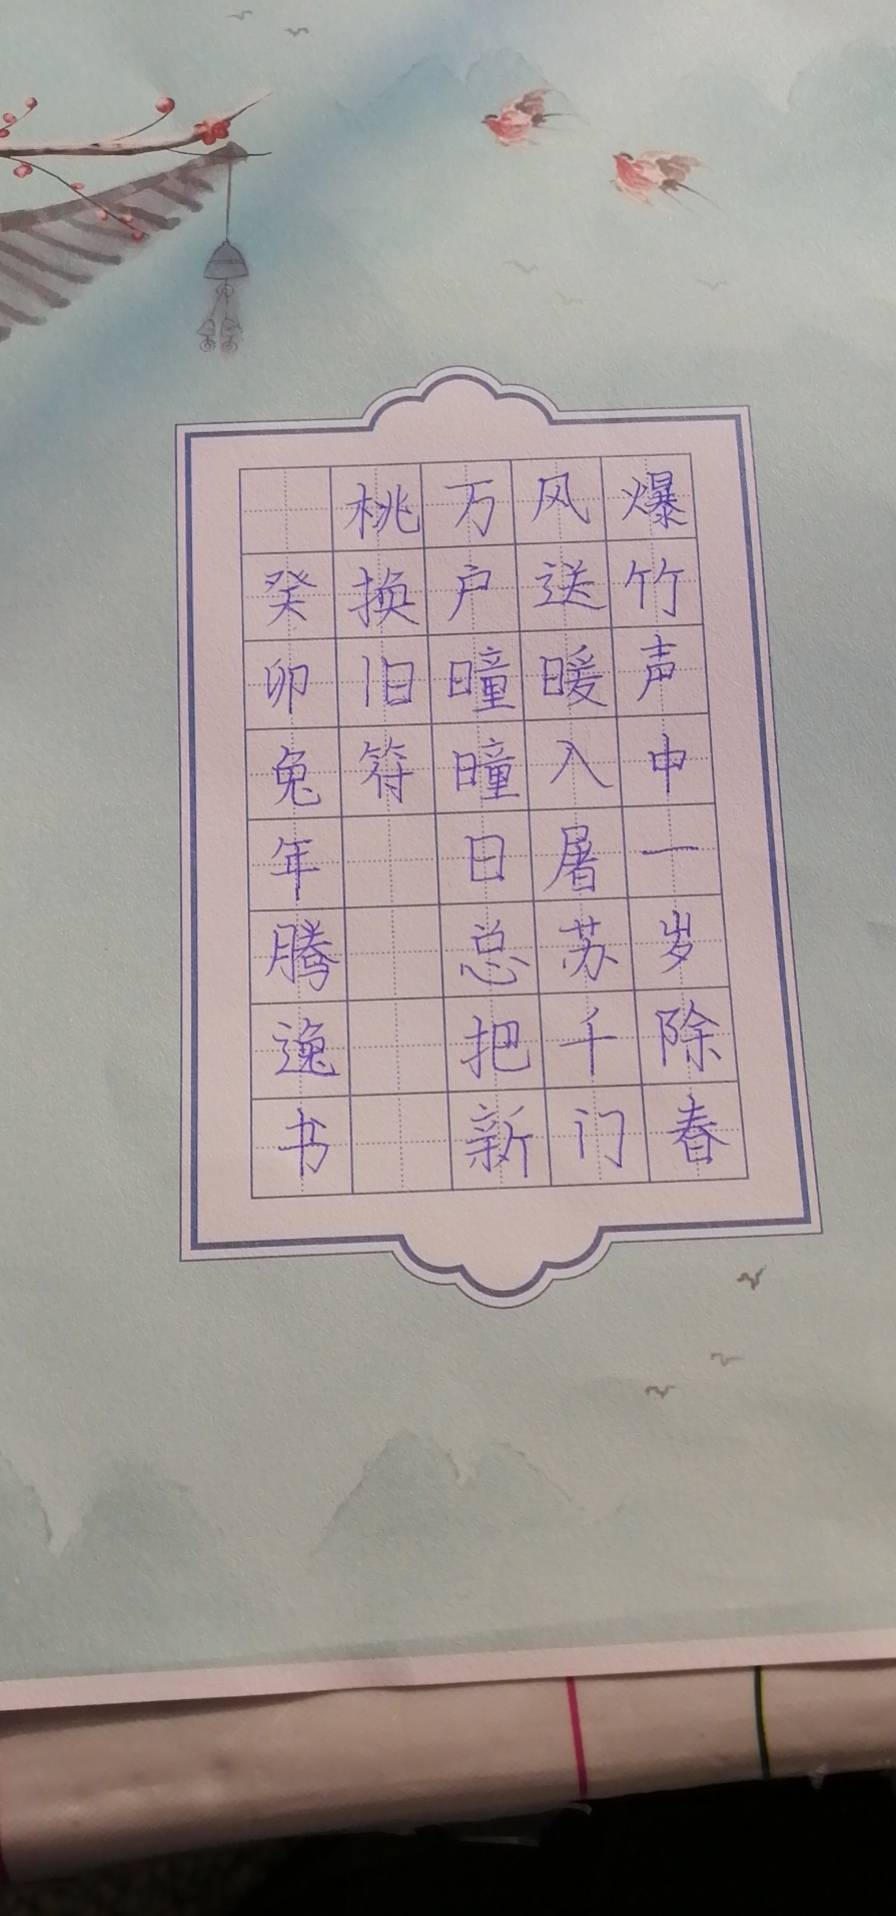 爆竹声中一岁除春
风送暖入屠苏千门
万户曈曈日总把新
桃换旧符
癸卯兔年腾逸书